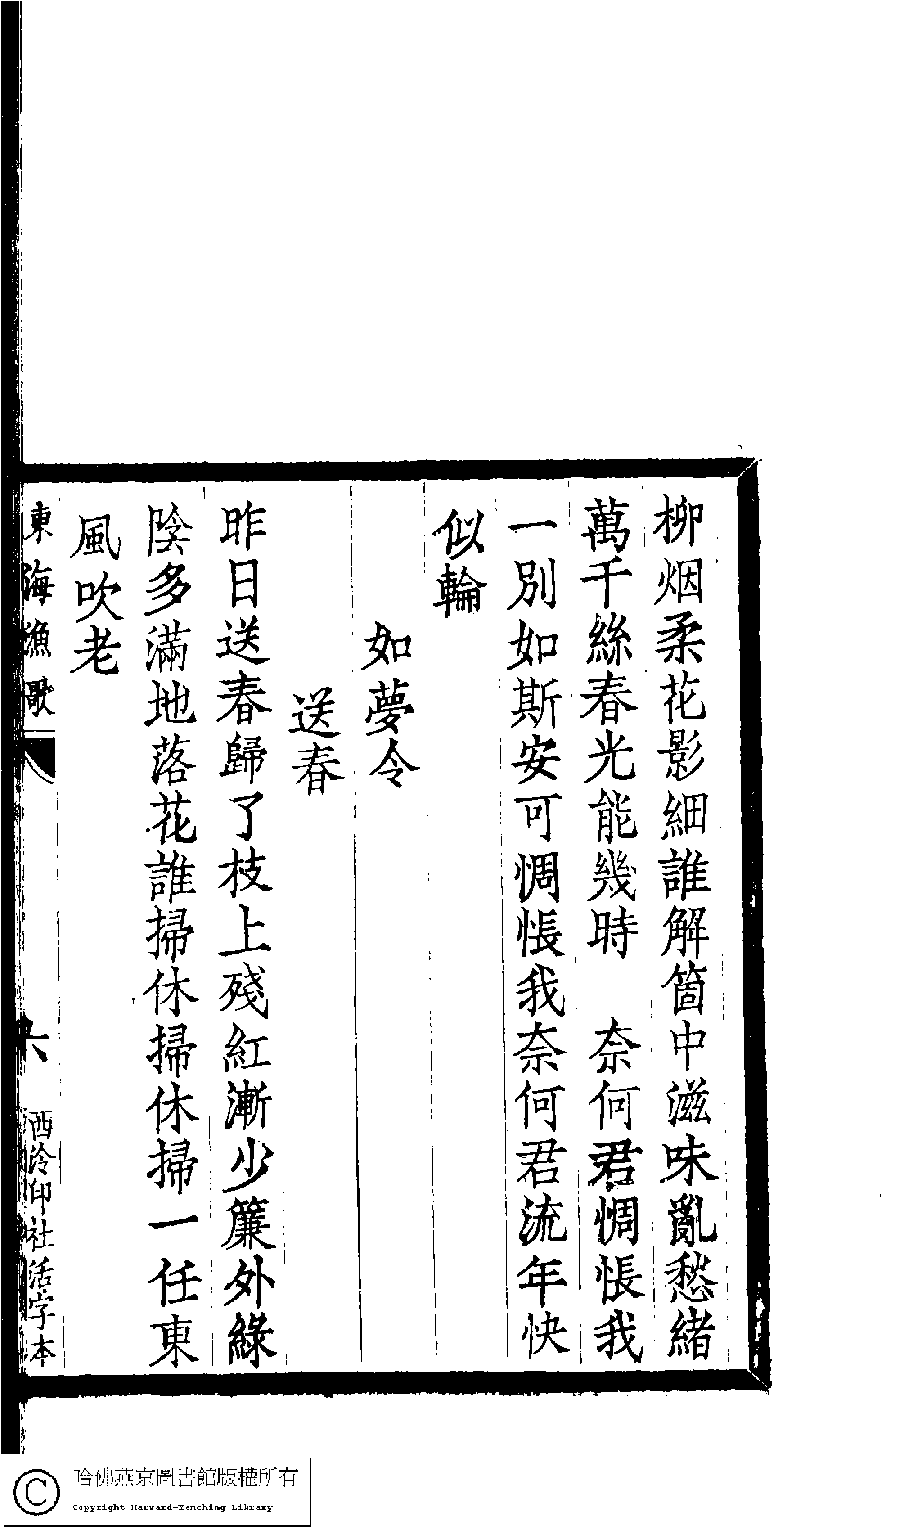 柳烟柔花影細誰解箇中滋味亂愁緒
萬千絲春光能幾時　奈何君惆悵我
一別如斯安可惆悵我奈何君流年快
似輪
如夢令
送春
昨日送春歸了枝上殘紅漸少簾外綠
陰多滿地落花誰掃休掃休掃一任東
風吹老
東海漁歌
六
西泠印社活字本
哈佛燕京圖書館版權所有
Copyright Harvard-Yenching Library